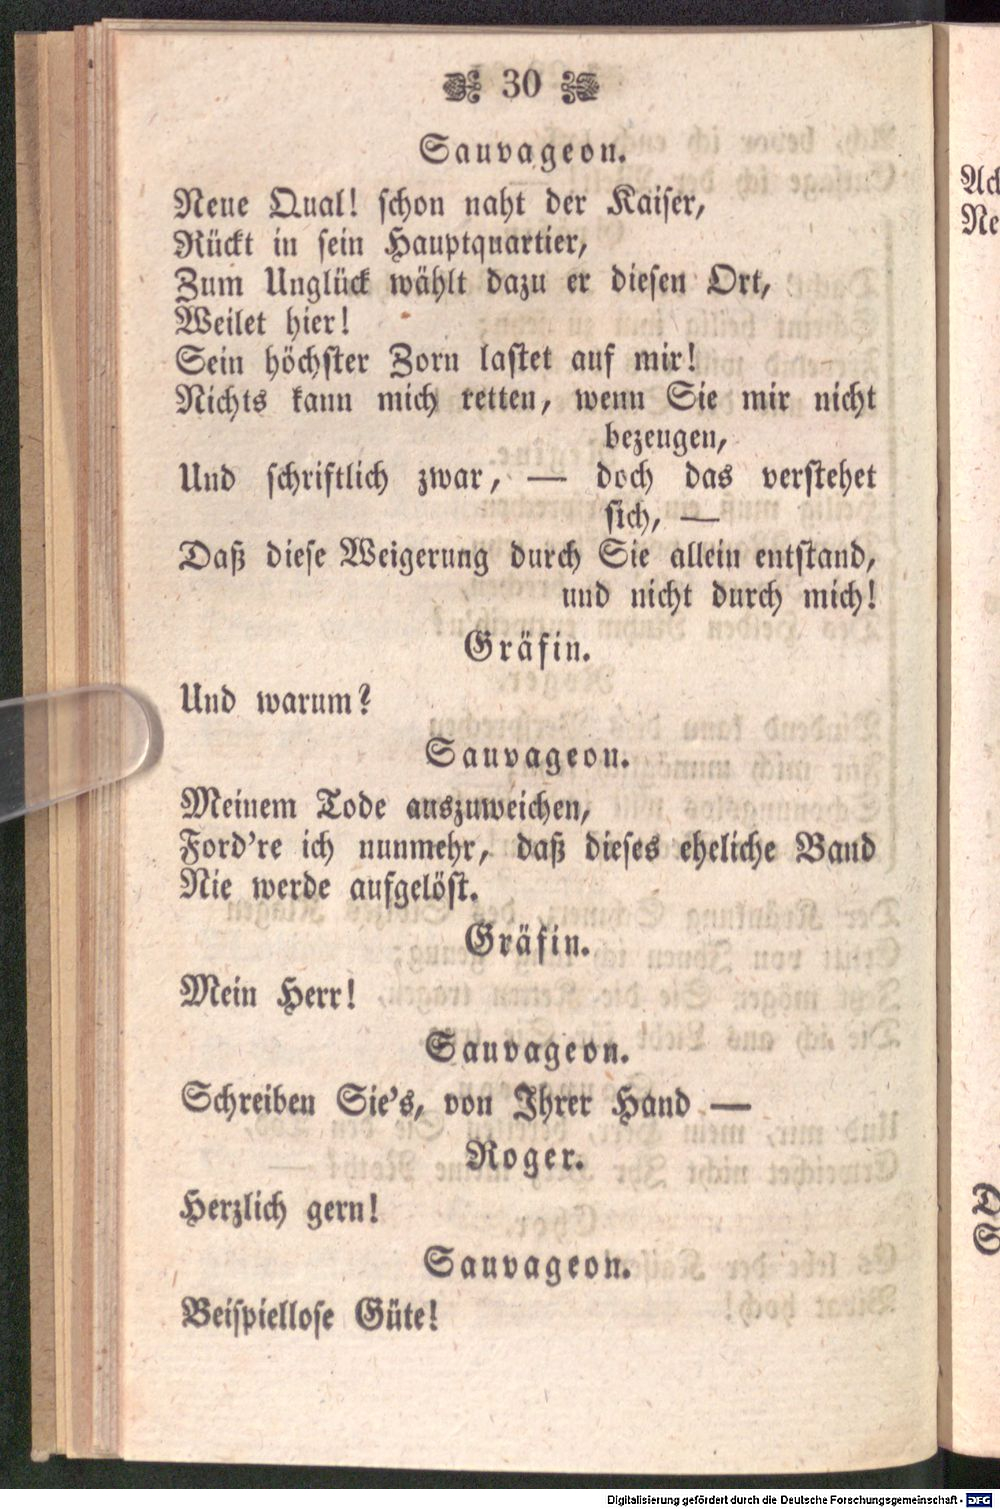 30
Sauvageon.
Neue Qual! schon naht der Kaiser,
Rückt in sein Hauptquartier,
Zum Unglück wählt dazu er diesen Ort,
Weilet hier!
Sein höchster Zorn lastet auf mir!
Nichts kann mich retten, wenn Sie mir nicht
bezeugen,
Und schriftlich zwar, — doch das verstehet
sich, —
Daß diese Weigerung durch Sie allein entstand,
und nicht durch mich!
Gräfin.
Und warum?
Sauvageon.
Meinem Tode auszuweichen,
Ford're ich nunmehr, daß dieses eheliche Band
Nie werde aufgelöst.
Gräfin.
Mein Herr!
Sauvageon.
Schreiben Sie's, von Ihrer Hand —
Roger.
Herzlich gern!
Sauvageon.
Beispiellose Güte!
Digitalisierung gefördert durch die Deutsche Forschungsgemeinschaft - DFG